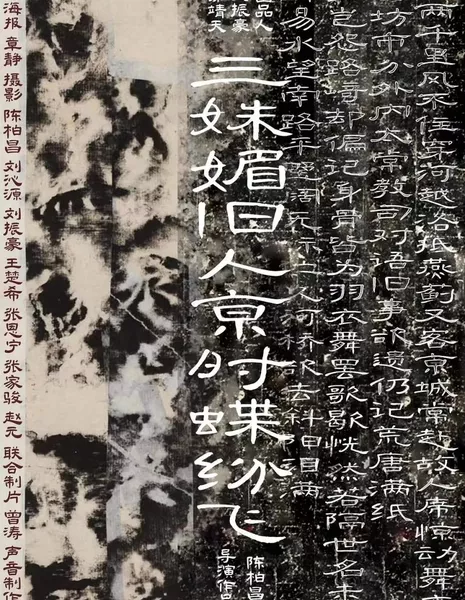 两千里风不住穿河越洛抵燕蓟又客京城常赴故人席惊动舞
坊市分外内太常教司对语旧事欲遗仍记荒唐满纸
岂怨路遥却偏记身骨皆为羽衣舞罢歌歇恍然若隔世名未
易水望南路平 人河桥 去斜日目满
品人
振豪
靖天
三姝媚旧人京时蝶纷飞
陈柏昌
导演作品
海报 章静 摄影 陈柏昌 刘沁源 刘振豪 王楚希 张恩宁 张家骏 赵元 联合制片 曾涛 声音制作